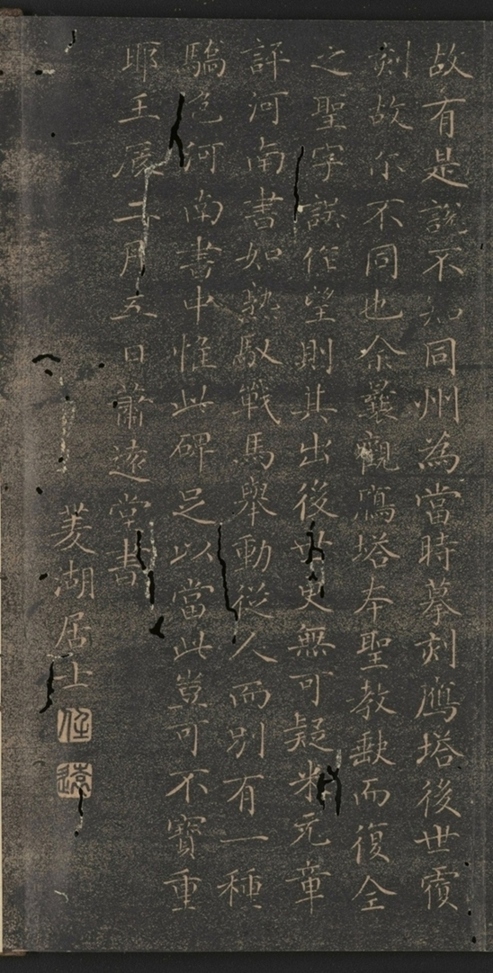 故有是說不知同州為當時摹刻鴈塔後世霞
刻故尔不同也余曩觀鴈塔本聖教缺而復全
之聖字誤作望則其出後世更無可疑米元章
評河南書如熟馭戰馬舉動從人而別有一種
驕色河南書中惟此碑足以當此豈可不寶重
耶壬辰二月五日蕭遠堂書
菱湖居士